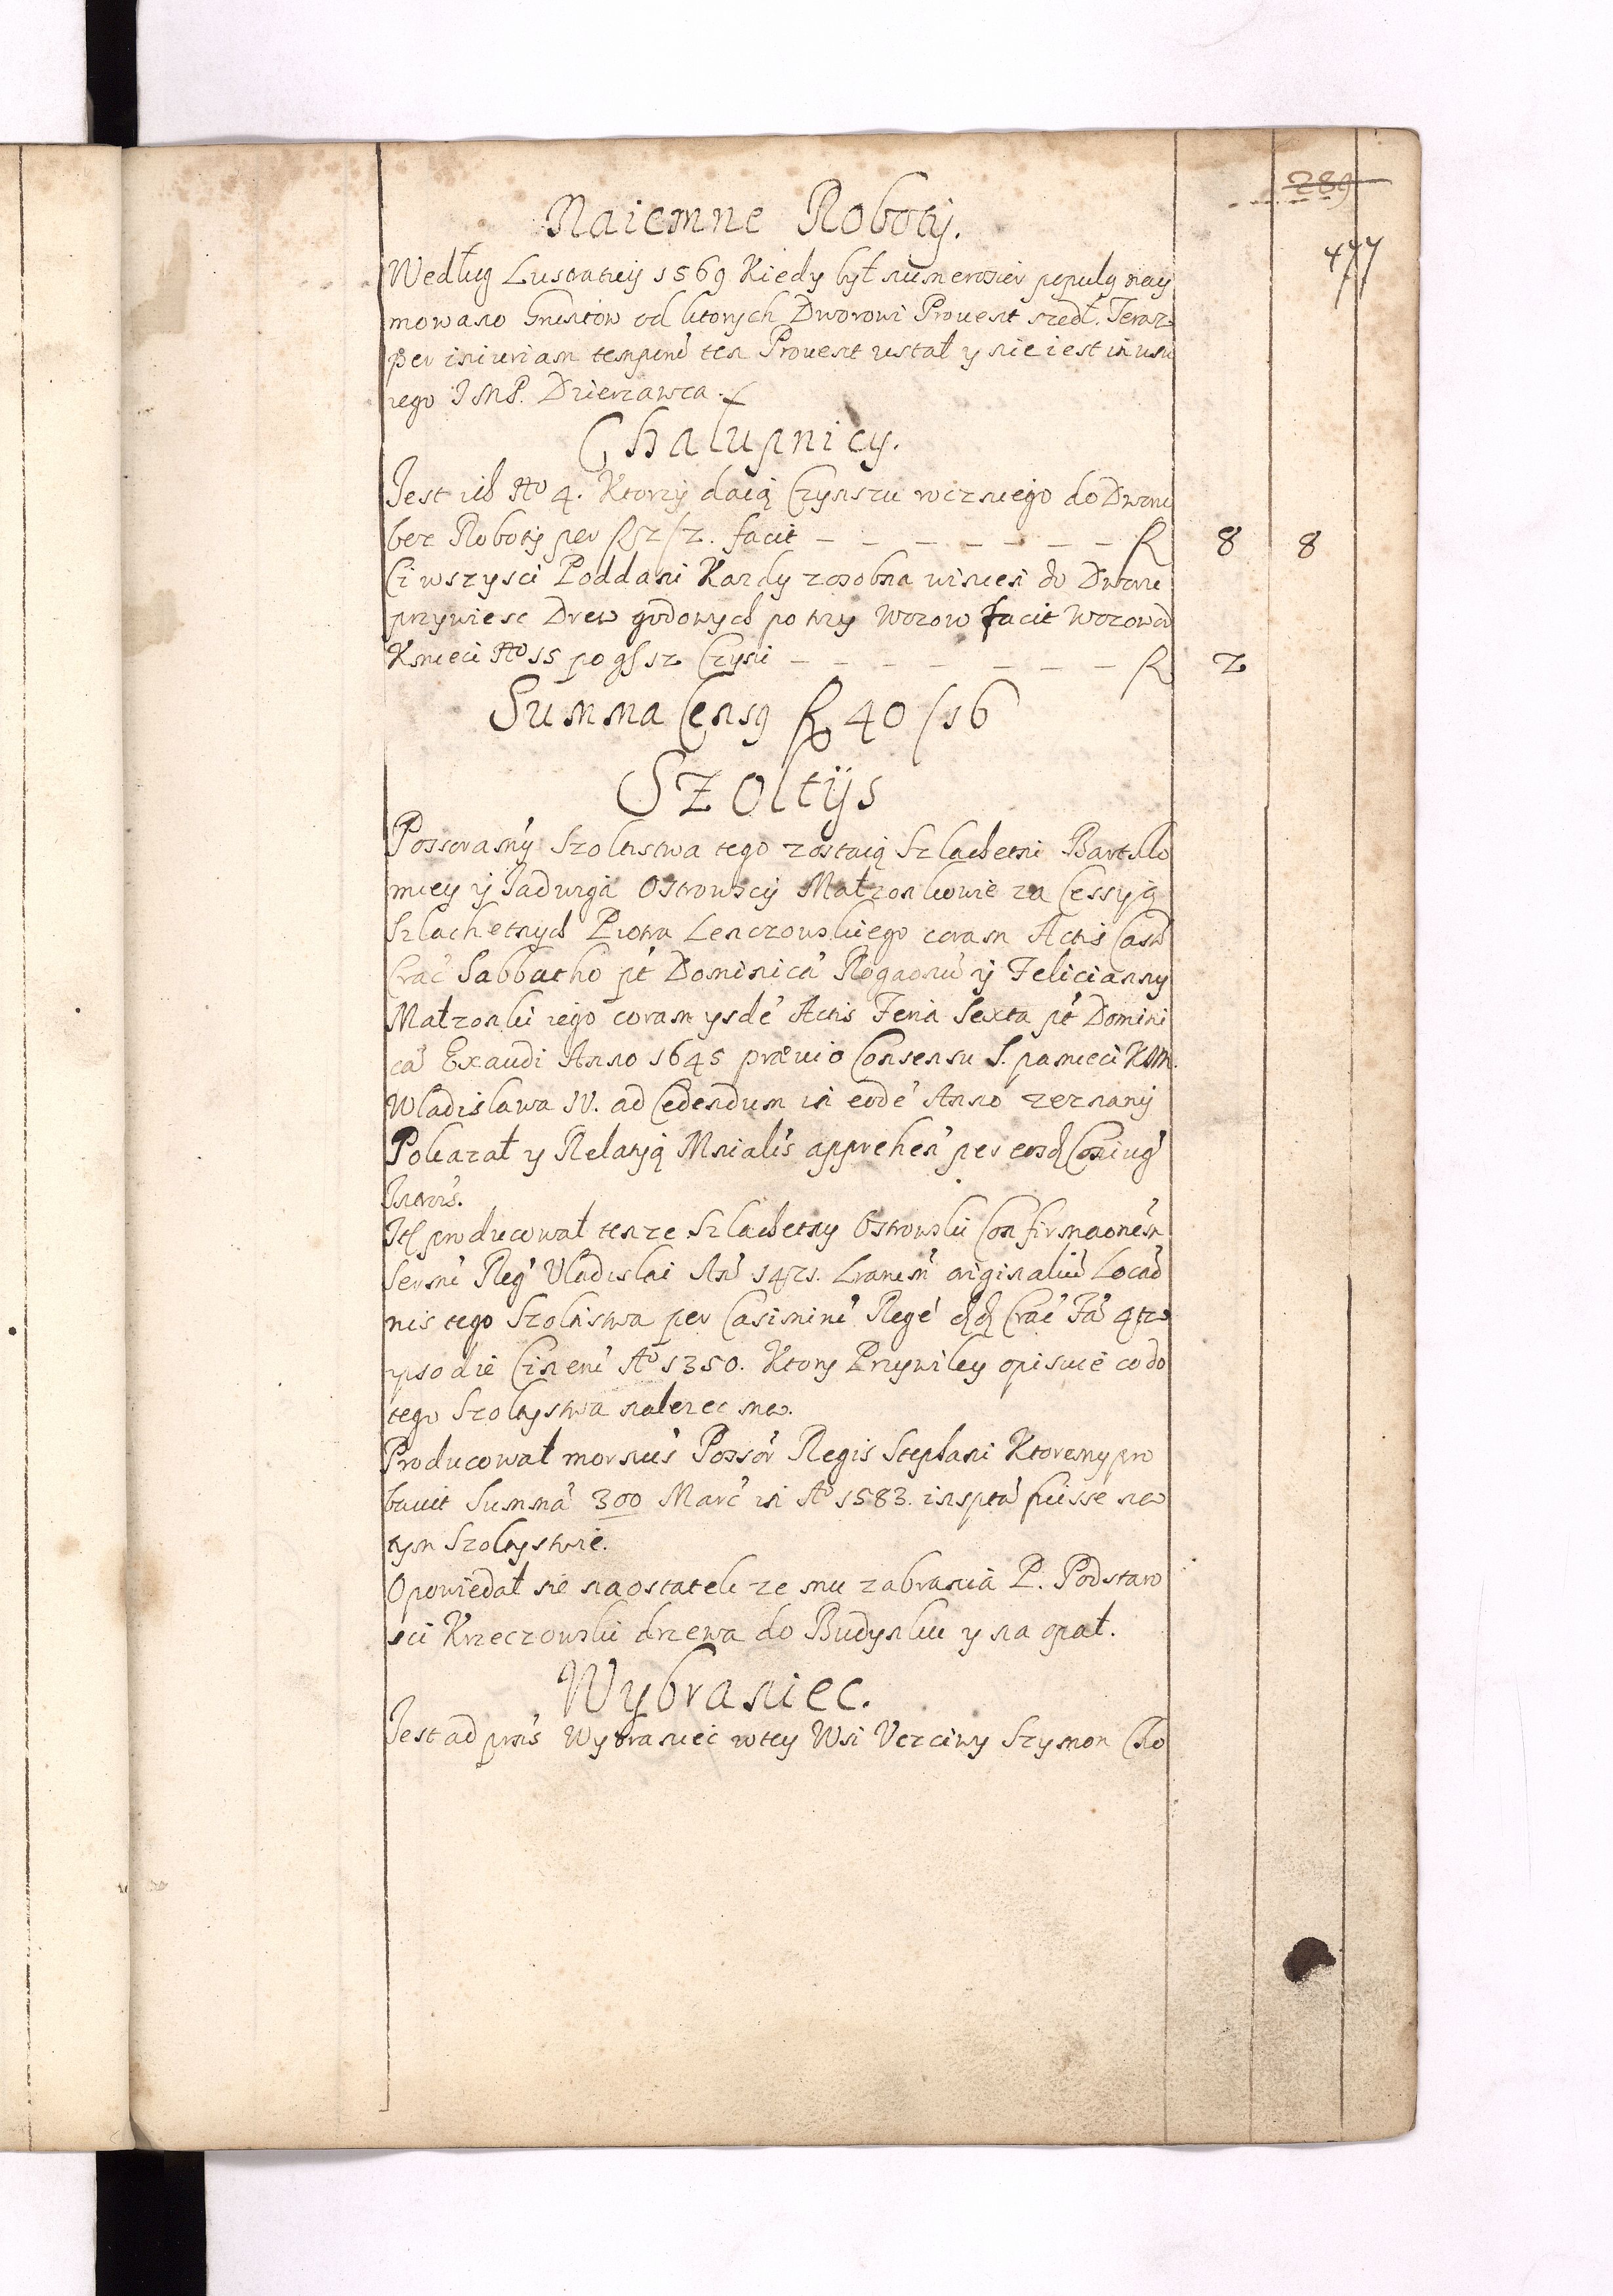 289
477
Naiemne Roboty.
Według Lustratiey 1569 Kiedy był numerosior populg nay
mowano Gruntow od ktorych Dworowi Prouent szedł. Teraz
per iniuriam temporu ten Prouent ustał y nie iest in usu
iego JMP. Dzierzawca.
Chalupnicy.
Jest ich No 4. Ktorzy daią Czynszu rocznego do Dworu
bez Roboty per fl 2/2. facit — — — — — — — fl 8 8
Ci wszysci Poddani Kazdy zosobna winien do Dworu
przywiesc Drew godowych po trzy Wozow facit Wozow od
Kmieci No 15 po gſ 12 Czyni — — — — — — — fl 2
Summa Censg fl 40/16
Szoltÿs
Possorasń̃y Szoltistwa tego zostaią Szlachetni Bartlo
miey ÿ Jadwiga Ostrowscy Małzonkowie za Cessyią
Szlachetnych Piotra Lenczowskiego coram Actis Castr
Crac Sabbatho pt Dominica Rogaonu ÿ Felicianny
Małzonki iego coram ysde Actis Feria Sexta pt Domini
ca Exaudi Anno 1645 præuio Consensu S. pamieci KJM.
Wladislawa IV. ad Cedendum in eode Anno zeznany
Pokazał y Relatią Mnialis apprehen per eosd Coniug
Introis.
Itſ producował tenze Szlachetny Ostrowski Confirmaonem
Sermi Reg Vladislai An 1421. Lrarum originaliu Locao
nis tego Szoltistwa per Casimiru Rege
ypso die Cineru Ao 1350. Ktory Przywiley opisuie co do
tego Szoltystwa nalezec ma.
Producował Possor Regis Stephani Ktoremy pro
bauit Summa 300 Marc in Ao 1583. inspta fuisse na
tym Szoltystwie.
Opowiedał sie naostatek ze mu zabrania P. Podstaro
sci Krzeczowski drzewa do Budynku y na opał.
Wybraniec.
Jest ad prns Wybraniec w tey Wsi Uczciwy Szymon Cho